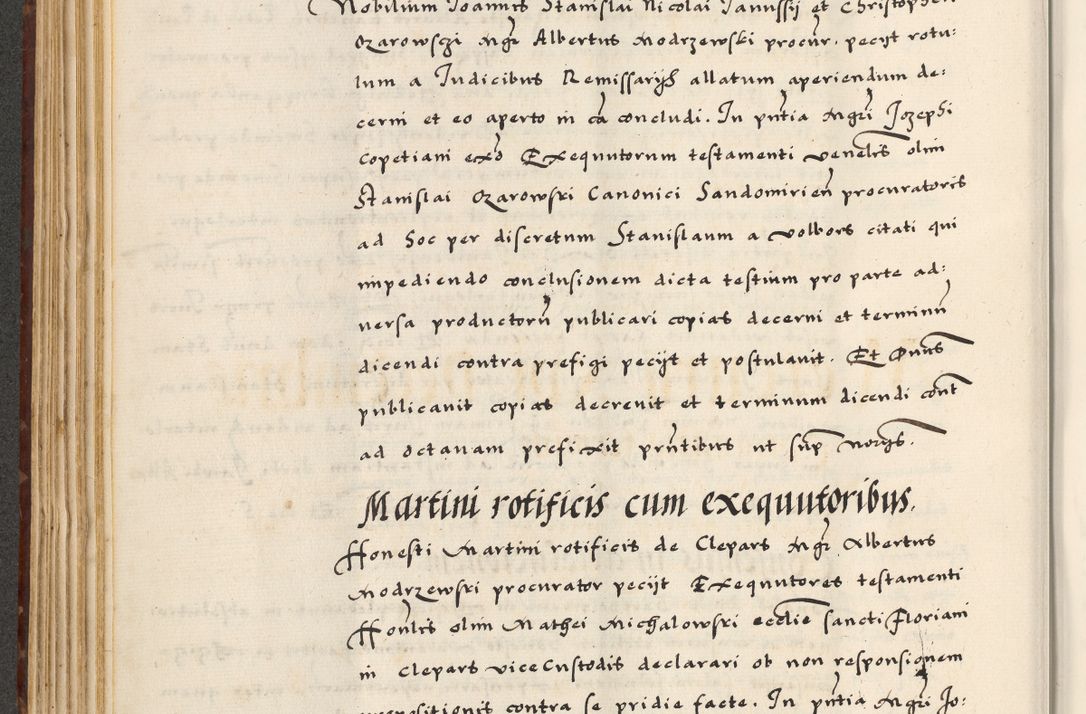 Nobilium Joannis Stanislai Nicolai Janussij et Christopheri
Ozarowsczi Mgr Albertus Modrzewski procur. pecijt rotu:
lum a Iudicibus Remissarijs allatum aperiendum de:
cerni et eo aperto in ca concludi. In pntia Mgri Jozephi
Copetiani exo Exequutorum testamenti venelis olim
Stanislai Ozarowski Canonici Sandomirien procuratoris
ad hoc per discretum Stanislaum a Volbors citati qui
impediendo conclusionem dicta testium pro parte ad:
versa productoru publicari copias decerni et terminu
dicendi contra prefigi pecijt et postulavit. Et Dnus
publicavit copias decrevit et terminum dicendi cont
ad octavam prefixit pntibus ut sup Norijs.
Martini rotificis cum exequutoribus.
Honesti Martini rotificis de Clepars Mgr Albertus
Modrzewski procurator pecijt Exequutores testamenti
Honlis olim Mathei Michalowski ecclie sancti Floriani
in Clepars viceCustodis declarari ob non responsionem
propositionis contra se pridie facte. In pntia Mgri Jo: